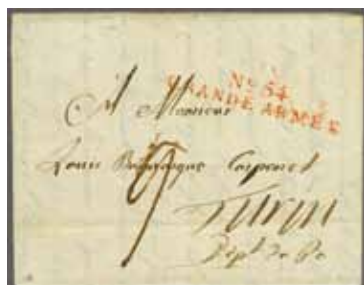 No. 54
GRANDE ARMÉE
A Monsieur
Louis
Turin
Dépt. du Po